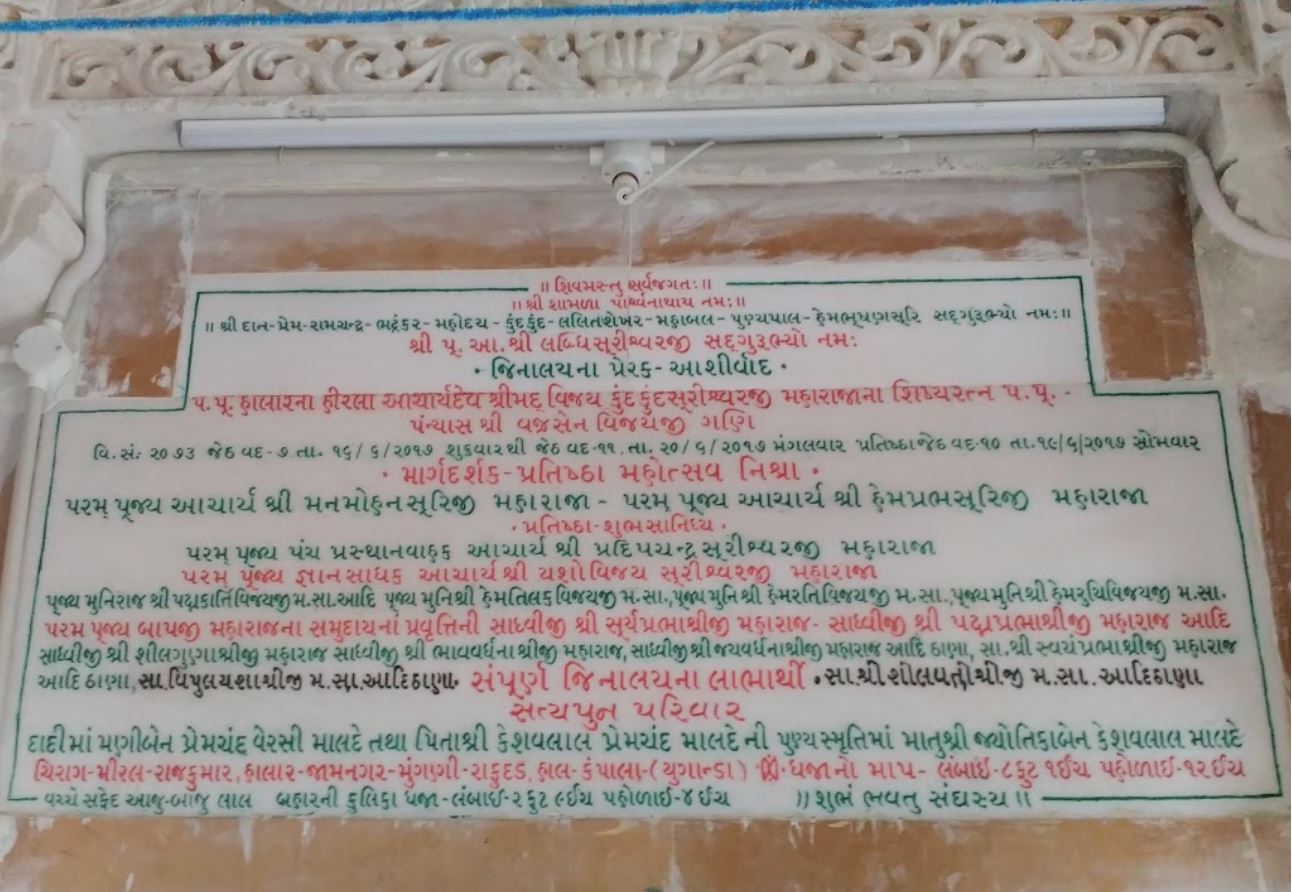 ॥ શિવમસ્તુ સર્વજગતઃ ॥
॥ શ્રી શામળા પાર્શ્વનાથાય નમઃ ॥
॥ શ્રી દાન-પ્રેમ-રામચન્દ્ર- ભદ્રંકર- મહોદય - કુંદકુંદ- લલિતશેખર- મહાબલ - પુણ્યપાલ- હેમભૂષણસૂરિ સદ્ગુરૂભ્યો નમઃ ॥
શ્રી પૂ. આ. શ્રી લબ્ધિસૂરીશ્વરજી સદ્ગુરૂભ્યો નમઃ
• જિનાલયના પ્રેરક- આશીર્વાદ •
પ. પૂ. હાલારના હીરલા આચાર્યદેવ શ્રીમદ્ વિજય કુંદકુંદસૂરીશ્વરજી મહારાજાના શિષ્યરત્ન પ. પૂ. -
પંન્યાસ શ્રી વજ્રસેન વિજયજી ગણિ
વિ. સં: ૨૦૭૩ જેઠ વદ - ૭ તા. ૧૬/૬/૨૦૧૭ શુક્રવાર થી જેઠ વદ-૧૧. તા. ૨૦/૬/૨૦૧૭ મંગલવાર પ્રતિષ્ઠા જેઠ વદ-૧૦ તા. ૧૯/૬/૨૦૧૭ સોમવાર
• માર્ગદર્શક-પ્રતિષ્ઠા મહોત્સવ નિશ્રા •
પરમ્ પૂજ્ય આચાર્ય શ્રી મનમોહનસૂરિજી મહારાજા - પરમ્ પૂજ્ય આચાર્ય શ્રી હેમપ્રભસૂરિજી મહારાજા
• પ્રતિષ્ઠા-શુભસાનિધ્ય •
પરમ્ પૂજ્ય પંચ પ્રસ્થાનવાહક આચાર્ય શ્રી પ્રદિપચન્દ્ર સૂરીશ્વરજી મહારાજા
પરમ્ પૂજ્ય જ્ઞાનસાધક આચાર્ય શ્રી યશોવિજય સૂરીશ્વરજી મહારાજા
પૂજ્ય મુનિરાજ શ્રી પદ્મકીર્તિવિજયજી મ. સા. આદિ પૂજ્ય મુનિશ્રી હેમતિલકવિજયજી મ. સા., પૂજ્ય મુનિ શ્રી હેમરતિવિજયજી મ. સા., પૂજ્ય મુનિ શ્રી હેમરુચિવિજયજી મ. સા.
પરમ પૂજ્ય બાપજી મહારાજના સમુદાયનાં પ્રવૃત્તિની સાધ્વીજી શ્રી સૂર્યપ્રભાશ્રીજી મહારાજ- સાધ્વીજી શ્રી પદ્મપ્રભાશ્રીજી મહારાજ આદિ
સાધ્વીજી શ્રી શીલગુણાશ્રીજી મહારાજ સાધ્વીજી શ્રી ભાવવર્ધનાશ્રીજી મહારાજ, સાધ્વીજી શ્રી જયવર્ધનાશ્રીજી મહારાજ આદિ ઠાણા, સા. શ્રી સ્વયંપ્રભાશ્રીજી મહારાજ
આદિ ઠાણા, સા. વિપુલયશાશ્રીજી મ. સા. આદિઠાણા• સંપૂર્ણ જિનાલયના લાભાર્થી • સા. શ્રી શીલવતીશ્રીજી મ. સા. આદિઠાણા
સત્યપુન પરિવાર
દાદીમાં મણીબેન પ્રેમચંદ વેરસી માલદે તથા પિતાશ્રી કેશવલાલ પ્રેમચંદ માલદે ની પુણ્ય સ્મૃતિમાં માતુશ્રી જ્યોતિકાબેન કેશવલાલ માલદે
ચિરાગ-મીરલ-રાજકુમાર, હાલાર-જામનગર-મુંગણી-રાફુદડ, હાલ- કંપાલા-(યુગાન્ડા) ધજાનો માપ- લંબાઈ - ૮ ફુટ ૧ ઈંચ પહોળાઈ-૧૨ ઈંચ
વચ્ચે સફેદ આજુ-બાજુ લાલ બહારની કુલિકા ધજા - લંબાઈ-૨ ફુટ ૯ ઈંચ પહોળાઈ-૪ ઈંચ ॥ શુભં ભવતુ સંઘસ્ય ॥